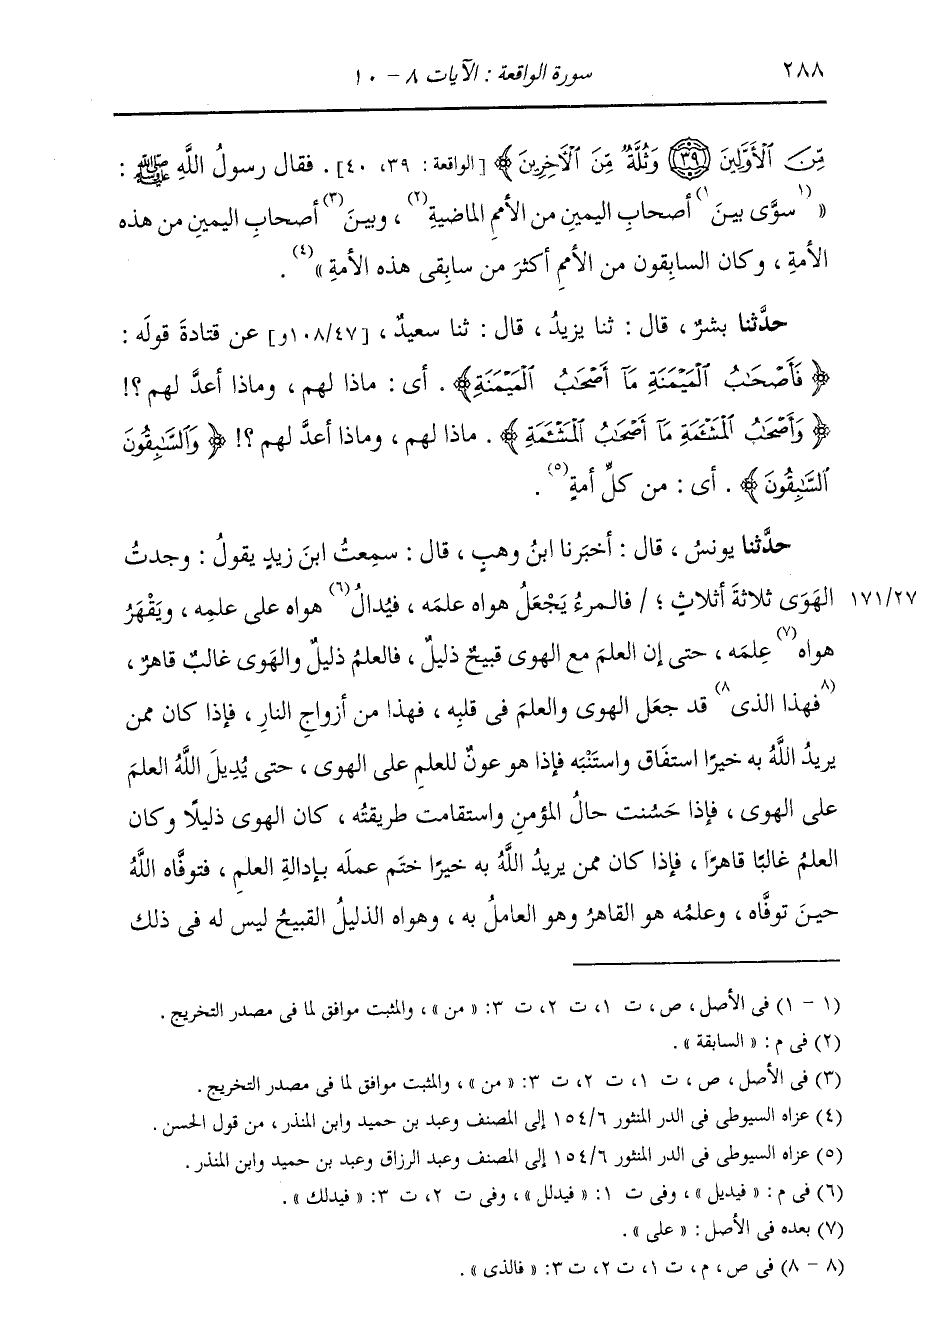 ٢٨٨ سورة الواقعة : الآيات ٨ - ١٠
مِّنَ ٱلْأَوَّلِينَ ﴿٣٩﴾ وَثُلَّةٌ مِّنَ ٱلْآخِرِينَ ﴾ [الواقعة : ٣٩، ٤٠] . فقال رسولُ اللَّهِ ﷺ :
« (١) سوَّى بينَ (١) أصحابِ اليمينِ من الأممِ الماضيةِ (٢) ، وبينَ (٣) أصحابِ اليمينِ من هذه
الأمةِ ، وكان السابقون من الأممِ أكثرَ من سابِقى هذه الأمةِ » (٤) .
حدَّثنا بشرٌ ، قال : ثنا يزيدُ ، قال : ثنا سعيدٌ ، [١٠٨/٤٧و] عن قتادةَ قولَه :
﴿ فَأَصْحَٰبُ ٱلْمَيْمَنَةِ مَآ أَصْحَٰبُ ٱلْمَيْمَنَةِ ﴾ . أى : ماذا لهم ، وماذا أعدَّ لهم ؟!
﴿ وَأَصْحَٰبُ ٱلْمَشْـَٔمَةِ مَآ أَصْحَٰبُ ٱلْمَشْـَٔمَةِ ﴾ . ماذا لهم ، وماذا أعدَّ لهم ؟! ﴿ وَٱلسَّٰبِقُونَ
ٱلسَّٰبِقُونَ ﴾ . أى : من كلِّ أمةٍ (٥) .
حدَّثنا يونسُ ، قال : أخبَرنا ابنُ وهبٍ ، قال : سمِعتُ ابنَ زيدٍ يقولُ : وجدتُ
١٧١/٢٧ الهَوَى ثلاثةَ أثلاثٍ ؛ / فالمرءُ يَجْعَلُ هواه علمَه ، فيُدالُ (٦) هواه على علمِه ، ويَقْهَرُ
هواه (٧) عِلمَه ، حتى إن العلمَ مع الهوى قبيحٌ ذليلٌ ، فالعلمُ ذليلٌ والهَوى غالبٌ قاهرٌ ،
(٨) فهذا الذى (٨) قد جعَل الهوى والعلمَ فى قلبِه ، فهذا من أزواجِ النارِ ، فإذا كان ممن
يريدُ اللَّهُ به خيرًا استفَاق واستَنْبَه فإذا هو عونٌ للعلمِ على الهوى ، حتى يُدِيلَ اللَّهُ العلمَ
على الهوى ، فإذا حَسُنت حالُ المؤمنِ واستقامت طريقتُه ، كان الهوى ذليلًا وكان
العلمُ غالبًا قاهرًا ، فإذا كان ممن يريدُ اللَّهُ به خيرًا ختَم عملَه بإدالةِ العلمِ ، فتوفَّاه اللَّهُ
حينَ توفَّاه ، وعلمُه هو القاهرُ وهو العاملُ به ، وهواه الذليلُ القبيحُ ليس له فى ذلك
(١ - ١) فى الأصل ، ص ، ت ١، ت ٢، ت ٣: « من » ، والمثبت موافق لما فى مصدر التخريج .
(٢) فى م : « السابقة » .
(٣) فى الأصل ، ص ، ت ١، ت ٢، ت ٣: « من » ، والمثبت موافق لما فى مصدر التخريج .
(٤) عزاه السيوطى فى الدر المنثور ١٥٤/٦ إلى المصنف وعبد بن حميد وابن المنذر ، من قول الحسن .
(٥) عزاه السيوطى فى الدر المنثور ١٥٤/٦ إلى المصنف وعبد الرزاق وعبد بن حميد وابن المنذر .
(٦) فى م : « فيديل » ، وفى ت ١: « فيدلل » ، وفى ت ٢، ت ٣: « فيدلك » .
(٧) بعده فى الأصل : « على » .
(٨ - ٨) فى ص ، م ، ت ١، ت ٢، ت ٣: « فالذى » .